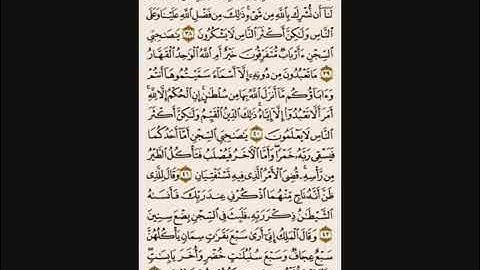 لَنَآ أَن نُّشْرِكَ بِٱللَّهِ مِن شَىْءٍ ۚ ذَٰلِكَ مِن فَضْلِ ٱللَّهِ عَلَيْنَا وَعَلَى
ٱلنَّاسِ وَلَٰكِنَّ أَكْثَرَ ٱلنَّاسِ لَا يَشْكُرُونَ ٣٨ يَٰصَٰحِبَىِ
ٱلسِّجْنِ ءَأَرْبَابٌ مُّتَفَرِّقُونَ خَيْرٌ أَمِ ٱللَّهُ ٱلْوَٰحِدُ ٱلْقَهَّارُ
٣٩ مَا تَعْبُدُونَ مِن دُونِهِۦٓ إِلَّآ أَسْمَآءً سَمَّيْتُمُوهَآ أَنتُمْ
وَءَابَآؤُكُم مَّآ أَنزَلَ ٱللَّهُ بِهَا مِن سُلْطَٰنٍ ۚ إِنِ ٱلْحُكْمُ إِلَّا لِلَّهِ ۚ
أَمَرَ أَلَّا تَعْبُدُوٓا۟ إِلَّآ إِيَّاهُ ۚ ذَٰلِكَ ٱلدِّينُ ٱلْقَيِّمُ وَلَٰكِنَّ أَكْثَرَ
ٱلنَّاسِ لَا يَعْلَمُونَ ٤٠ يَٰصَٰحِبَىِ ٱلسِّجْنِ أَمَّآ أَحَدُكُمَا
فَيَسْقِى رَبَّهُۥ خَمْرًا ۖ وَأَمَّا ٱلْءَاخَرُ فَيُصْلَبُ فَتَأْكُلُ ٱلطَّيْرُ
مِن رَّأْسِهِۦ ۚ قُضِىَ ٱلْأَمْرُ ٱلَّذِى فِيهِ تَسْتَفْتِيَانِ ٤١ وَقَالَ لِلَّذِى
ظَنَّ أَنَّهُۥ نَاجٍ مِّنْهُمَا ٱذْكُرْنِى عِندَ رَبِّكَ فَأَنسَىٰهُ
ٱلشَّيْطَٰنُ ذِكْرَ رَبِّهِۦ فَلَبِثَ فِى ٱلسِّجْنِ بِضْعَ سِنِينَ
٤٢ وَقَالَ ٱلْمَلِكُ إِنِّىٓ أَرَىٰ سَبْعَ بَقَرَٰتٍ سِمَانٍ يَأْكُلُهُنَّ
سَبْعٌ عِجَافٌ وَسَبْعَ سُنۢبُلَٰتٍ خُضْرٍ وَأُخَرَ يَابِسَٰتٍ